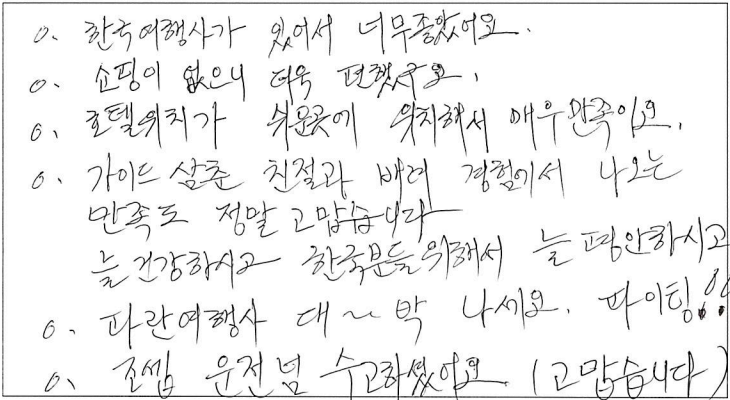 o. 한국여행사가 있어서 너무좋았어요.
o. 쇼핑이 없으니 더욱 편했구요.
o. 호텔위치가 쉬운곳에 위치해서 매우만족이요.
o. 가이드 삼춘 친절과 배려 경험에서 나오는
만족도 정말 고맙습니다
늘건강하시고 한국분들위해서 늘 평안하시고
o. 파란여행사 대~박 나세요. 파이팅!!
o. 조셉 운전넘 수고하셨어요 (고맙습니다)